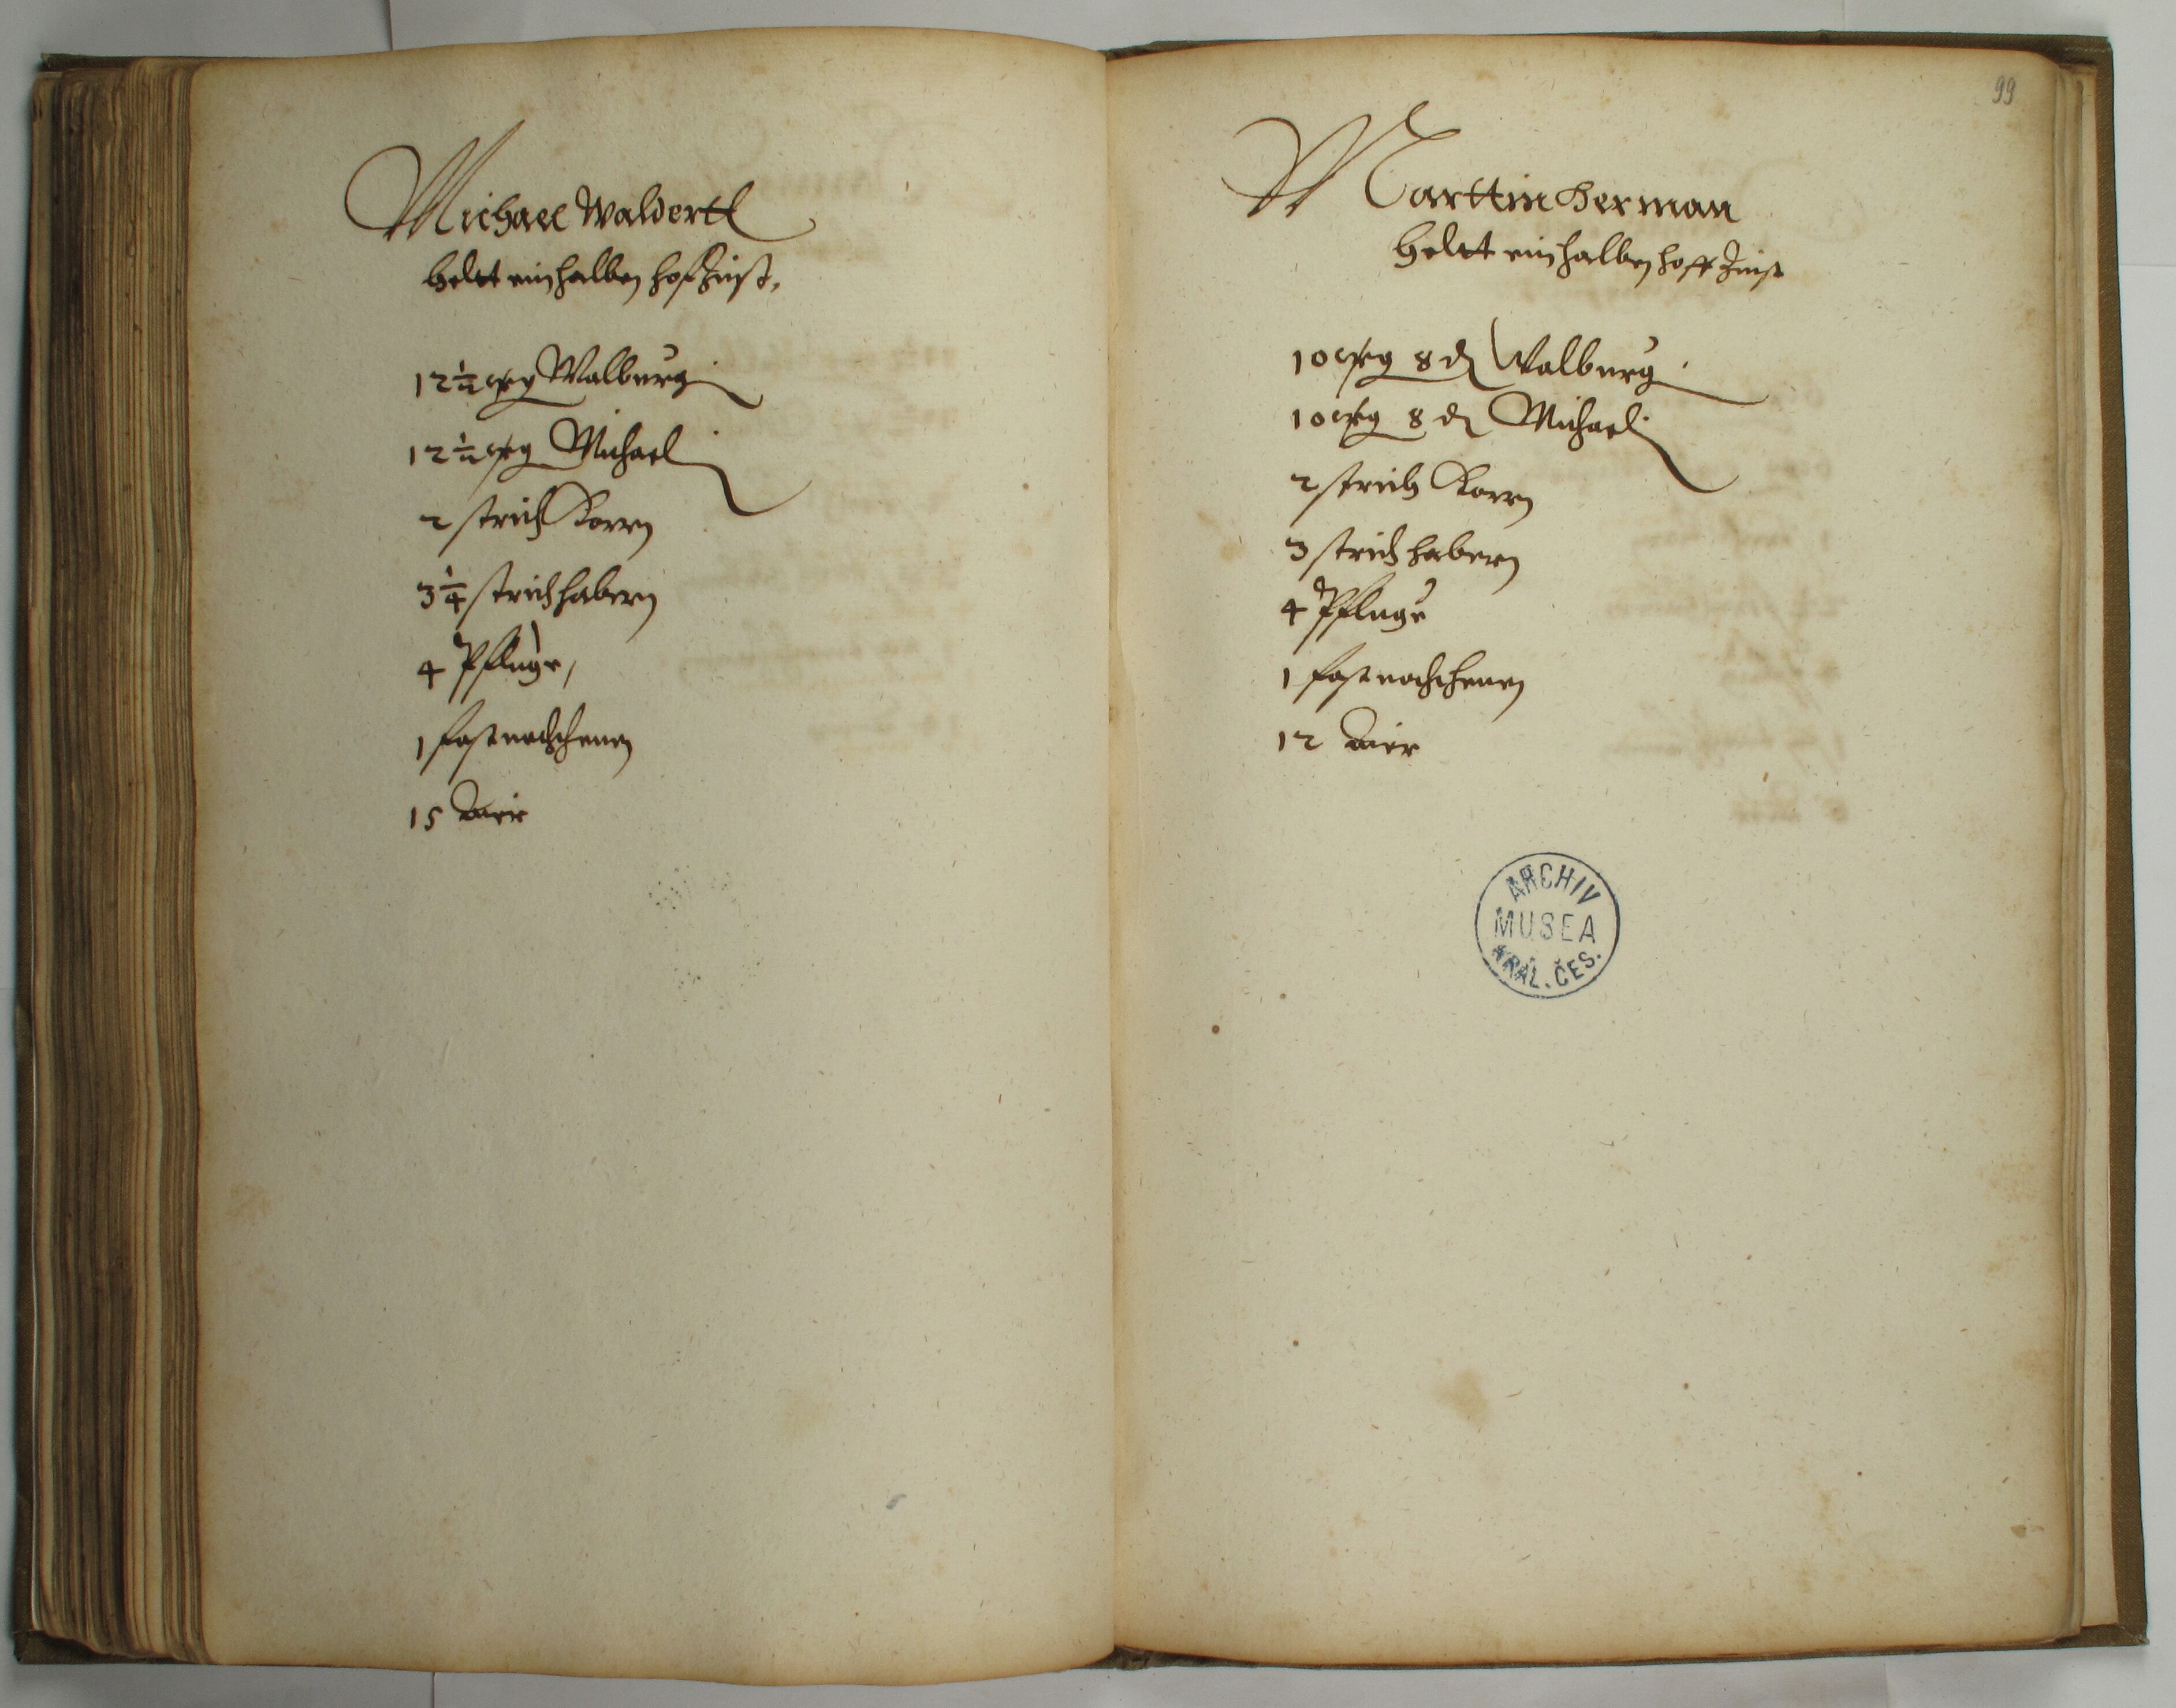 Michael Waldertl
helt ein halben hof Zinst,
12 1/2 wßg Walburgi
12 1/2 wßg Michaeli
2 strich Korn
3 1/4 strich habern
4 Pflüge,
1 fastnachthenn
15 Air
99
Marttin Herman
Helt ein halben hoff Zinst
10 wßg 8 d Walburgi
10 wßg 8 d Michaeli
2 strich Korn
3 strich habern
4 Pfluge
1 fastnachthenn
12 Air
ARCHIV
MUSEA
KRÁL. ČES.